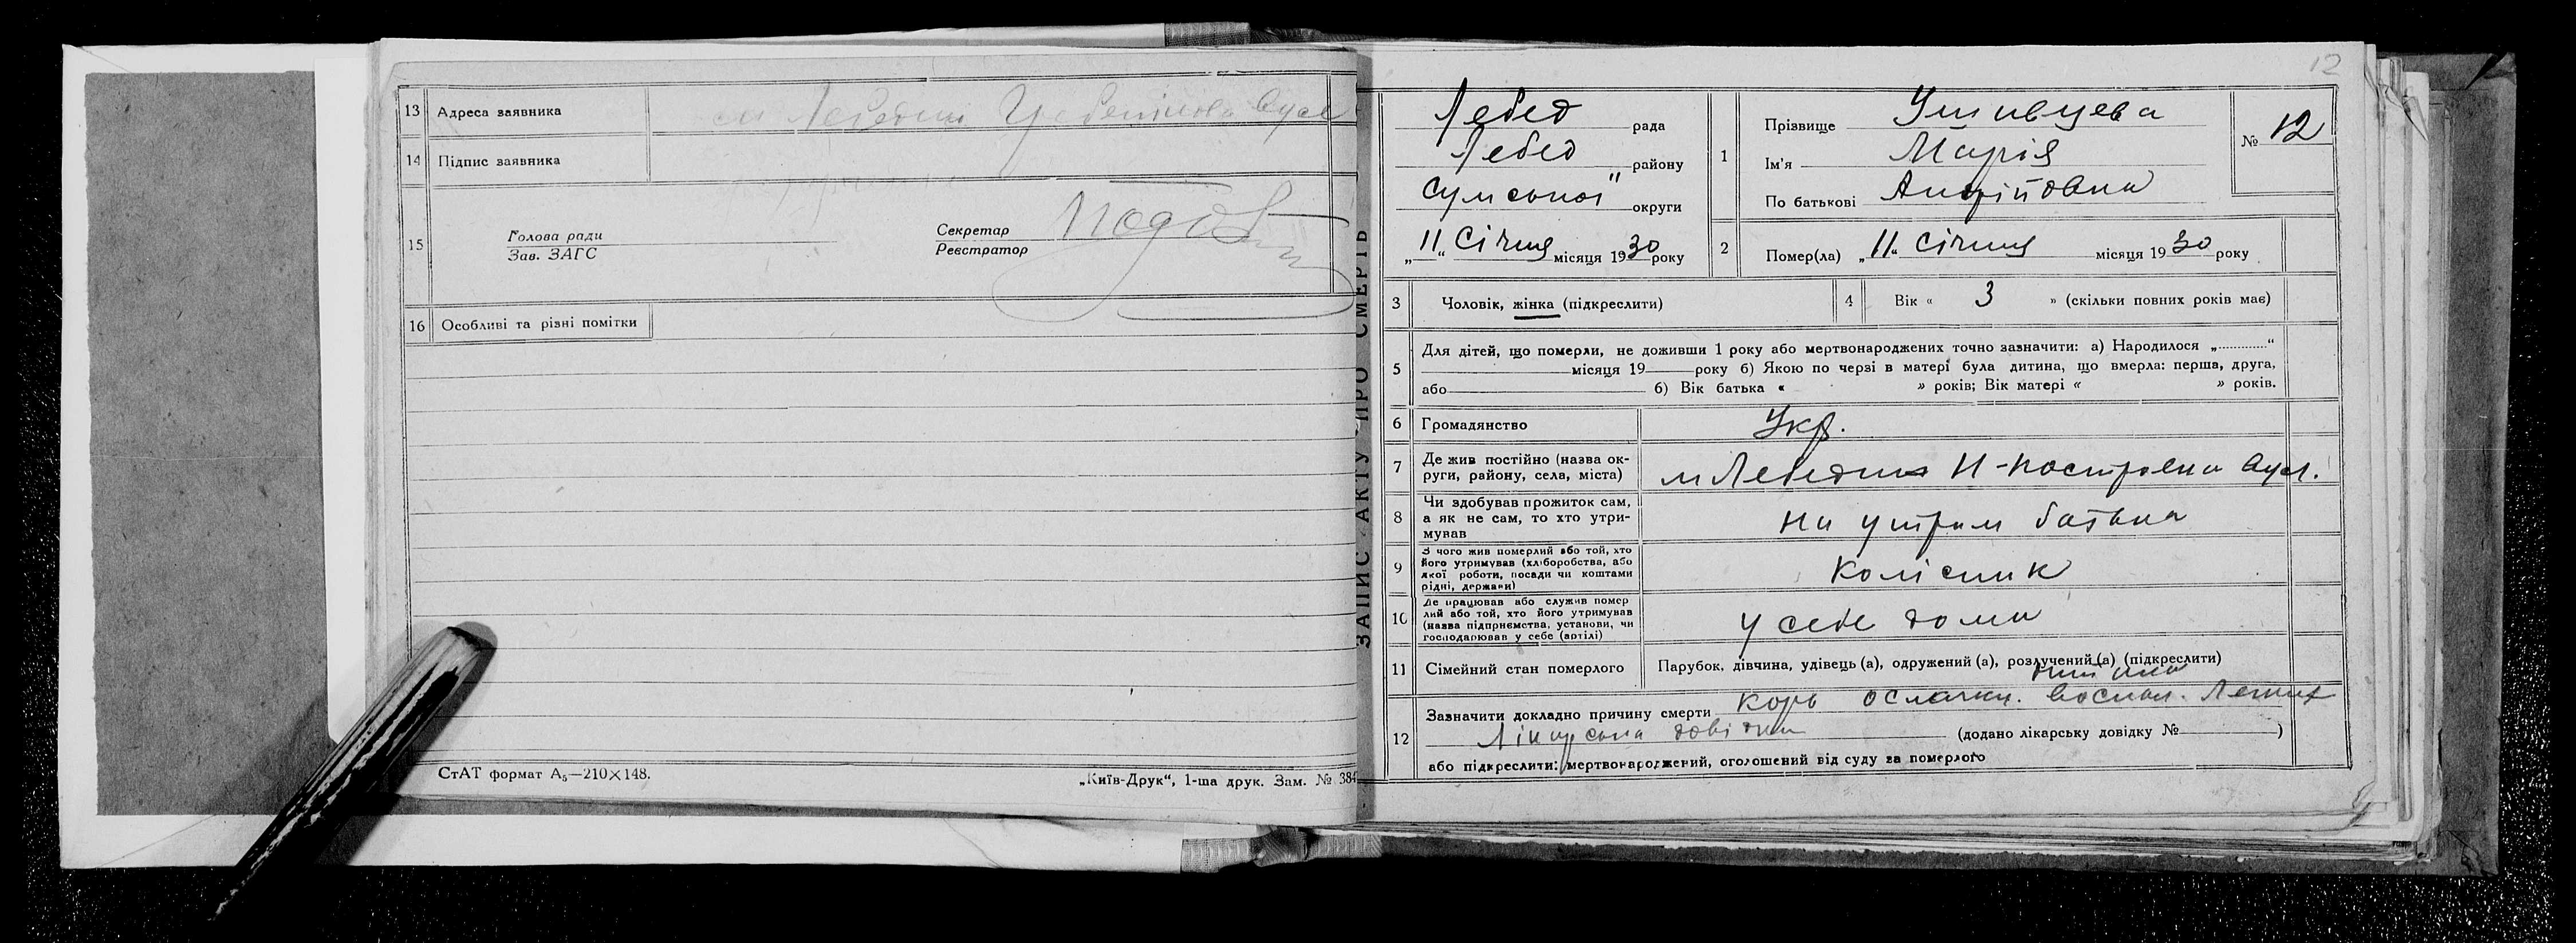 13 Адреса заявника м Лебедин вул
14 Підпис заявника
15 Голова ради
Зав. ЗАГС
Секретар
Реєстратор
16 Особливі та різні помітки
СтАТ формат А₅—210×148.
„Київ-Друк“, 1-ша друк. Зам. № 384
ЗАПИС АКТУ ПРО СМЕРТЬ
12
Лебед рада
Лебед району
Сумської округи
„11“ Січня місяця 1930 року
1 Прізвище
Ім'я Марія
По батькові Андріївна
№ 12
2 Помер(ла) „11“ Січня місяця 1930 року
3 Чоловік, жінка (підкреслити)
4 Вік « 3 » (скільки повних років має)
5 Для дітей, що померли, не доживши 1 року або мертвонароджених точно зазначити: а) Народилося „............“
місяця 19 року б) Якою по черзі в матері була дитина, що вмерла: перша, друга,
або б) Вік батька « » років; Вік матері « » років.
6 Громадянство Укр.
7 Де жив постійно (назва ок-
руги, району, села, міста) м Лебедин Н-построєна вул.
8 Чи здобував прожиток сам,
а як не сам, то хто утри-
мував На утрим батька
9 З чого жив померлий або той, хто
його утримував (хліборобства, або
якої роботи, посади чи коштами
рідні, держави) Колісник
10 Де працював або служив помер
лий або той, хто його утримував
(назва підприємства, установи, чи
господарював у себе (артілі) у себе дома
11 Сімейний стан померлого Парубок, дівчина, удівець (а), одружений (а), розлучений (а) (підкреслити)
дитина
12 Зазначити докладно причину смерти корь воспал. Легких
Лікарська довідка (додано лікарську довідку № )
або підкреслити: мертвонароджений, оголошений від суду за померлого